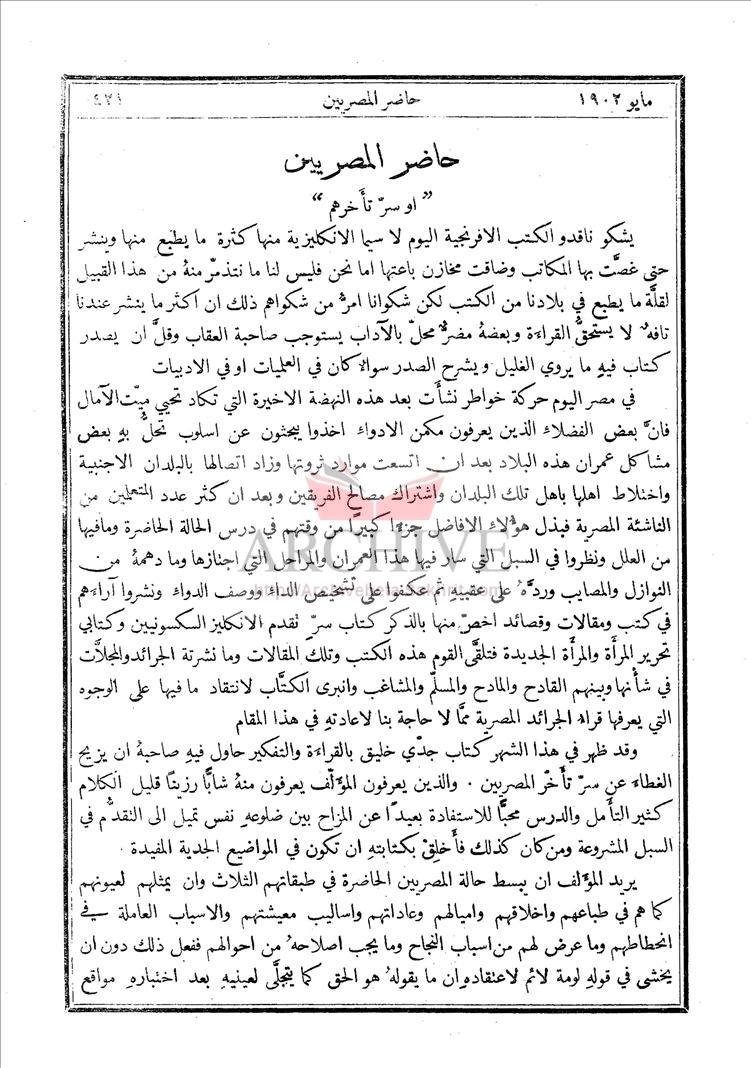 مايو ١٩٠٢
حاضر المصريين
٤٢١
حاضر المصريين
” او سرّ تأخرهم “
يشكو ناقدو الكتب الافرنجية اليوم لا سيما الانكليزية منها كثرة ما يطبع منها وينشر
حتى غصَّت بها المكاتب وضاقت مخازن باعتها اما نحن فليس لنا ما نتذمّر منهُ من هذا القبيل
لقلَّة ما يطبع في بلادنا من الكتب لكن شكوانا امرُّ من شكواهم ذلك ان اكثر ما ينشر عندنا
تافهٌ لا يستحقُّ القراءة وبعضهُ مضرٌّ مخلّ بالآداب يستوجب صاحبهُ العقاب وقلَّ ان يصدر
كتاب فيهِ ما يروي الغليل ويشرح الصدر سواءٌ كان في العلميات او في الادبيات
في مصر اليوم حركة خواطر نشأَت بعد هذه النهضة الاخيرة التي تكاد تحيي ميّت الآمال
فانَّ بعض الفضلاء الذين يعرفون مكمن الادواء اخذوا يبحثون عن اسلوب تحلُّ بهِ بعض
مشاكل عمران هذه البلاد بعد ان اتسعت موارد ثروتها وزاد اتصالها بالبلدان الاجنبية
واختلاط اهلها باهل تلك البلدان واشتراك مصالح الفريقين وبعد ان كثر عدد المتعلمين من
الناشئة المصرية فبذل هؤلاء الافاضل جزءًا كبيرًا من وقتهم في درس الحالة الحاضرة ومافيها
من العلل ونظروا في السبل التي سار فيها هذا العمران والمراحل التي اجتازها وما دهمهُ من
النوازل والمصايب وردَّهُ على عقبيهِ ثم عكفوا على تشخيص الداء ووصف الدواء ونشروا آراءهم
في كتب ومقالات وقصائد اخصّ منها بالذكر كتاب سرّ تقدم الانكليز السكسونيين وكتابي
تحرير المرأة والمرأة الجديدة فتلقَّى القوم هذه الكتب وتلك المقالات وما نشرتة الجرائد والمجلاَّت
في شأنها وبينهم القادح والمادح والمسلّم والمشاغب وانبرى الكتَّاب لانتقاد ما فيها على الوجوه
التي يعرفها قراء الجرائد المصرية ممَّا لا حاجة بنا لاعادتهِ في هذا المقام
وقد ظهر في هذا الشهر كتاب جدّي خليق بالقراءة والتفكير حاول فيهِ صاحبهُ ان يزيح
الغطاء عن سرّ تأخّر المصريين . والذين يعرفون المؤلّف يعرفون منهُ شابًّا رزينًا قليل الكلام
كثير التأمل والدرس محبًّا للاستفادة بعيدًا عن المزاح بين ضلوعهِ نفس تميل الى التقدُّم في
السبل المشروعة ومن كان كذلك فأخلِقْ بكتابتهِ ان تكون في المواضيع الجدية المفيدة .
يريد المؤلف ان يبسط حالة المصريين الحاضرة في طبقاتهم الثلاث وان يمثلهم لعيونهم
كما هم في طباعهم واخلاقهم واميالهم وعاداتهم واساليب معيشتهم والاسباب العاملة في
انحطاطهم وما عرض لهم من اسباب النجاح وما يجب اصلاحهُ من احوالهم ففعل ذلك دون ان
يخشى في قولهِ لومة لائم لاعتقاده ان ما يقولهُ هو الحق كما يتجلَّى لعينيهِ بعد اختبارهِ مواقع
ARCHIVE